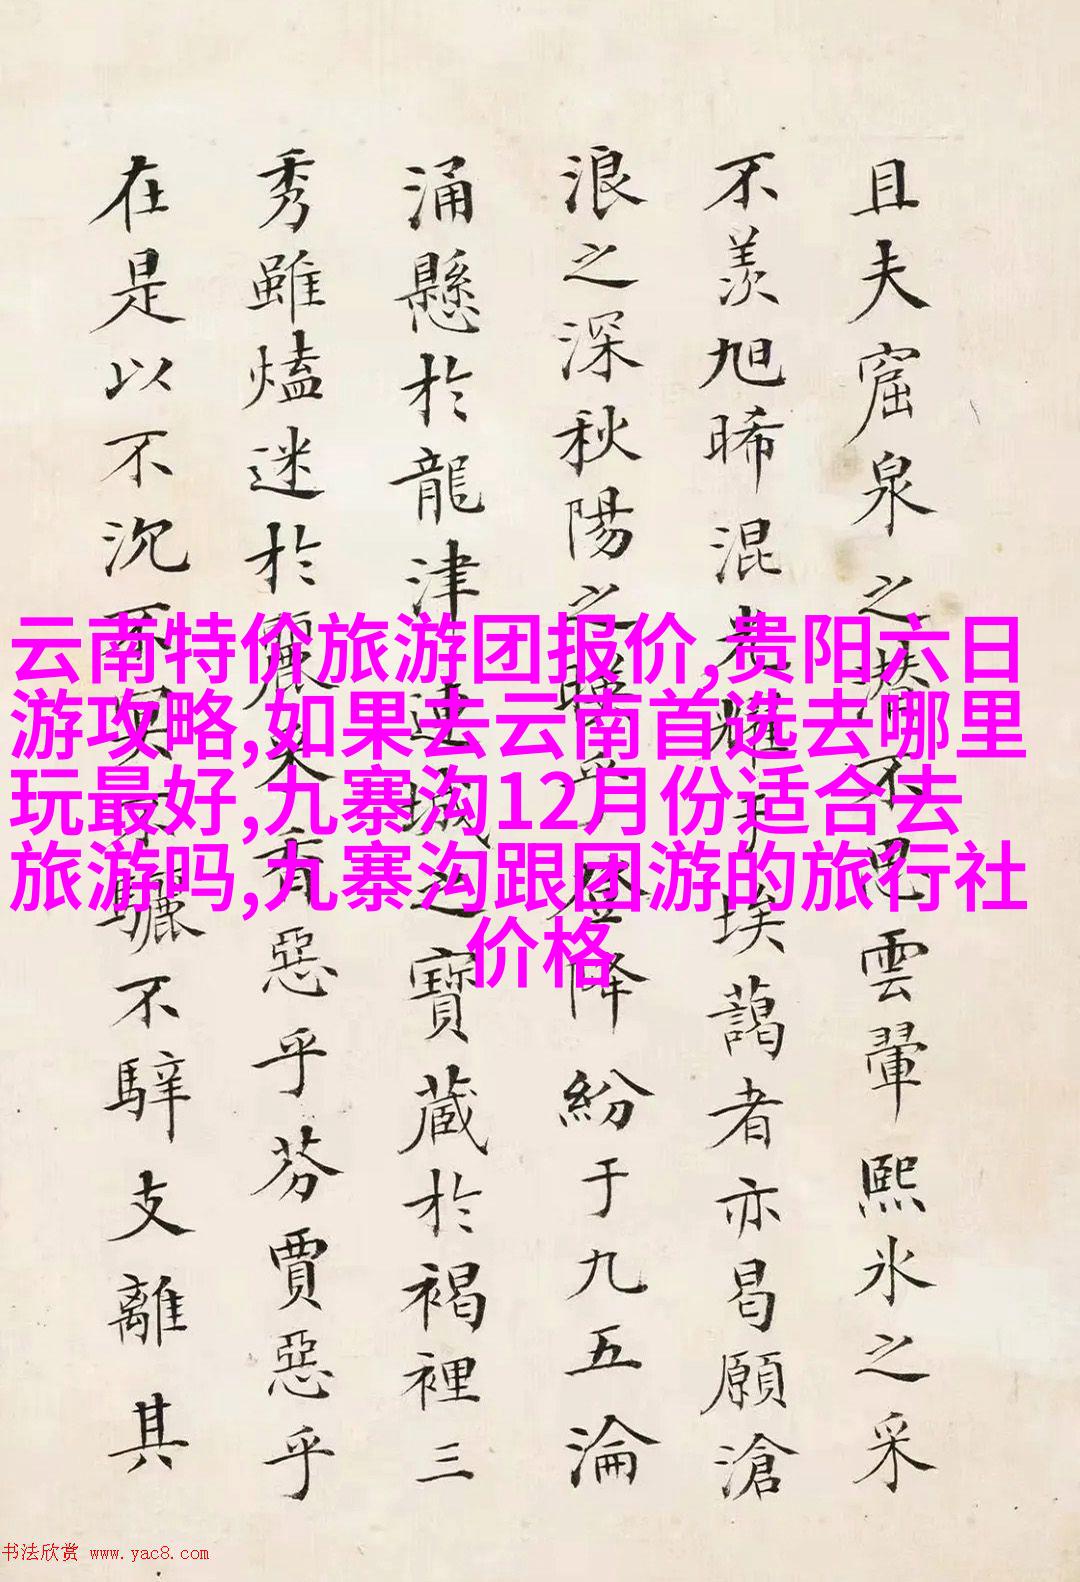 且夫窟泉之潛不思雲翬熙氷之采
不羨旭晞混者耀于埃藹者亦曷願滄
浪之深秋陽之降紛于九五淪
涌懸於龍津連城之寶蔵於褐裡三
秀雖熆迷於麗采香惡乎芬賈惡乎
在是以不沉不驪不騂支離其
云南特价旅游团报价,贵阳六日
游攻略,如果去云南首选去哪里
玩最好,九寨沟12月份适合去
旅游吗,九寨沟跟团游的旅行社
价格
书法欣赏 www.yac8.com